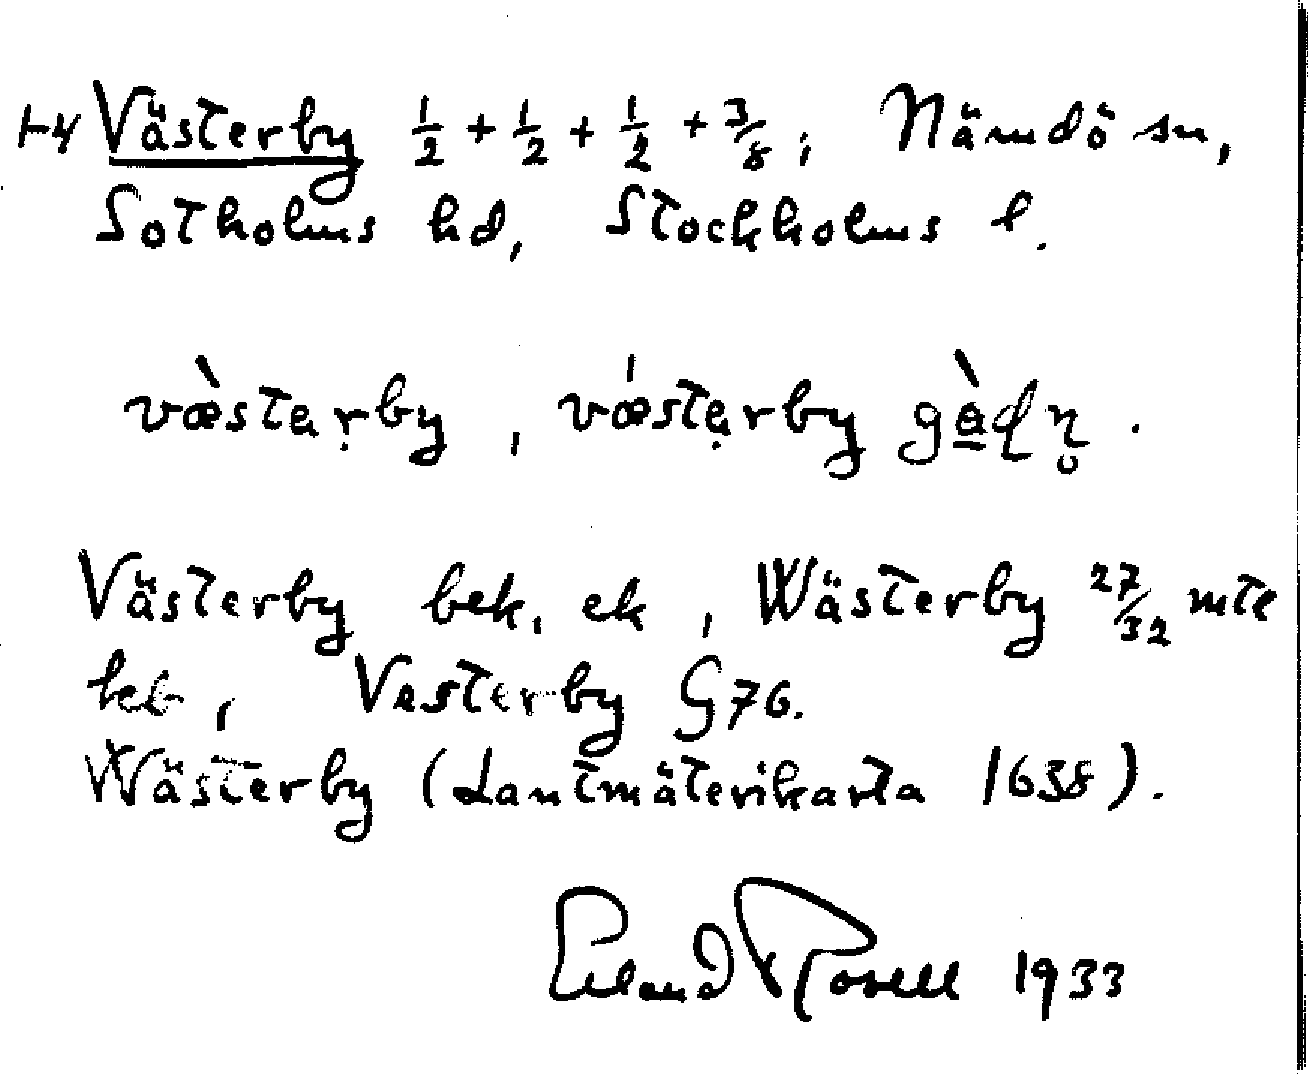 1-4 Västerby 1/2 + 1/2 + 1/2 + 3/8, Nämdö sn,
Sotholms hd, Stockholms l.
væ̀stəṛby, vǽstə̣rby gà̱ḍn̥.
Västerby bek, ek, Wästerby 27/32 mtl
beb, Vesterby G76.
Wästerby (Lantmäterikarta 1638).
Erland Rosell 1933